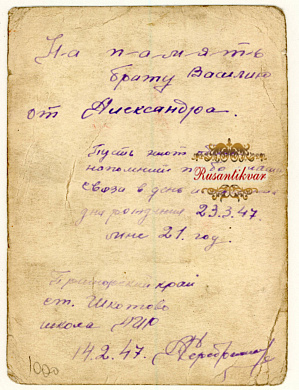 На память
брату Василию
от Александра.
Пусть этот
напомнит тебе
связи в день
дня рождения 23.3.47
мне 21. год.
Приморский край
ст. Шкотово
школа
14.2.47.
Rusantikvar
1000